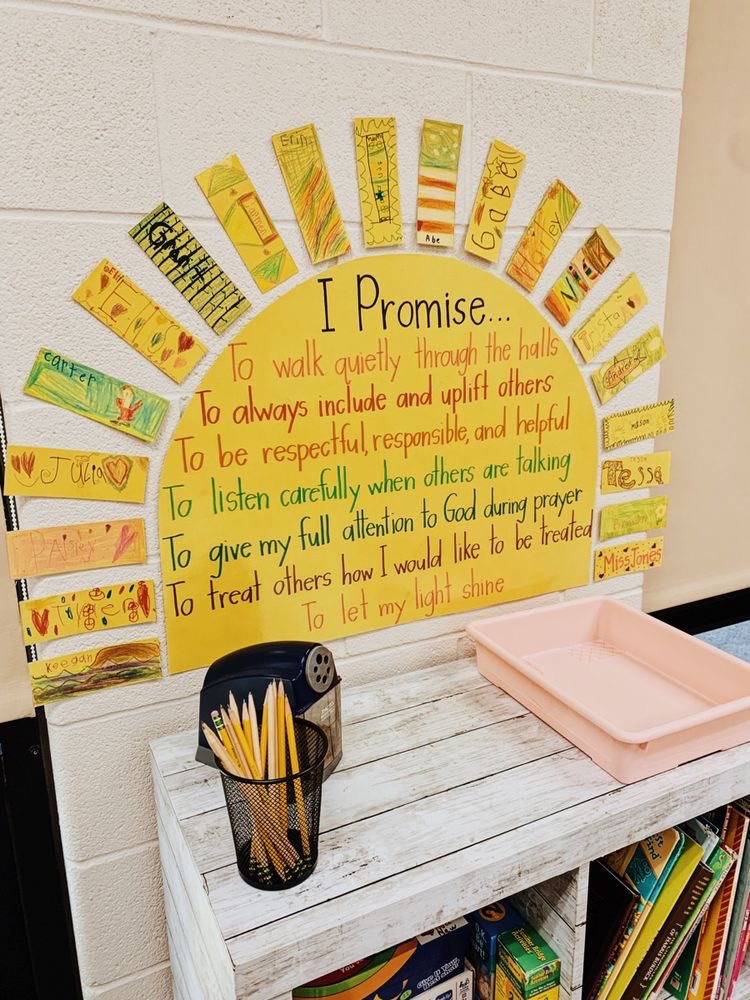 I Promise...
To walk quietly through the halls
To always include and uplift others
To be respectful, responsible, and helpful
To listen carefully when others are talking
To give my full attention to God during prayer
To treat others how I would like to be treated
To let my light shine
Keegan
Paisley
Julia
carter
Grant
Erin
Abe
Gabe
Harley
mason
Tessa
Miss Jones